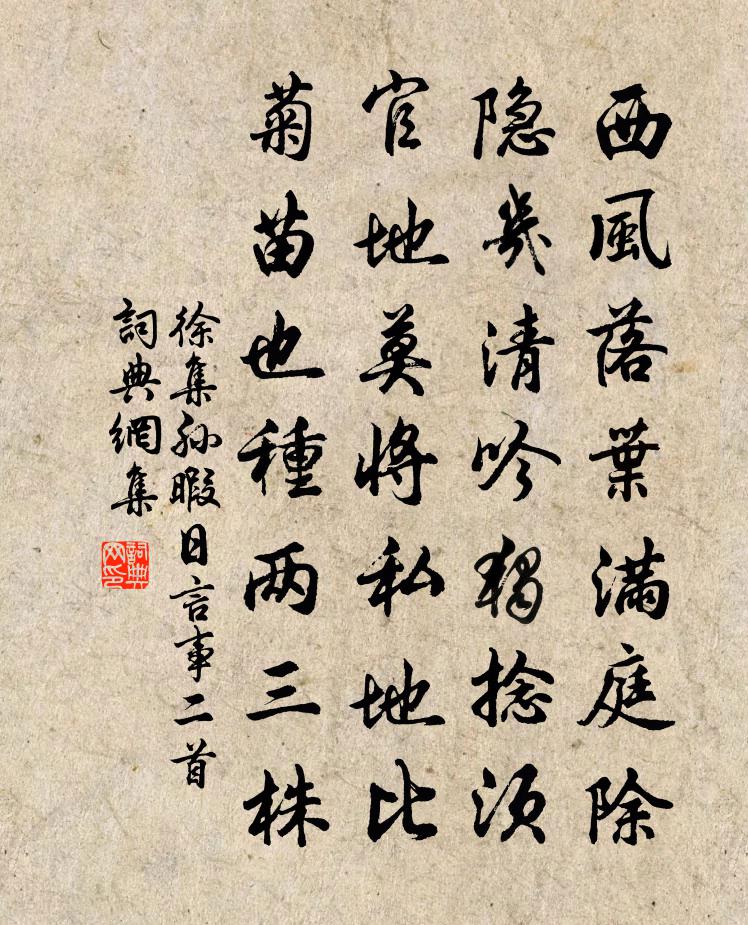 西風落葉滿庭除
隐幾清吟獨捻須
官地莫將私地比
菊苗也種两三株
徐集孙暇日言事二首
詞典網集
詞典网印